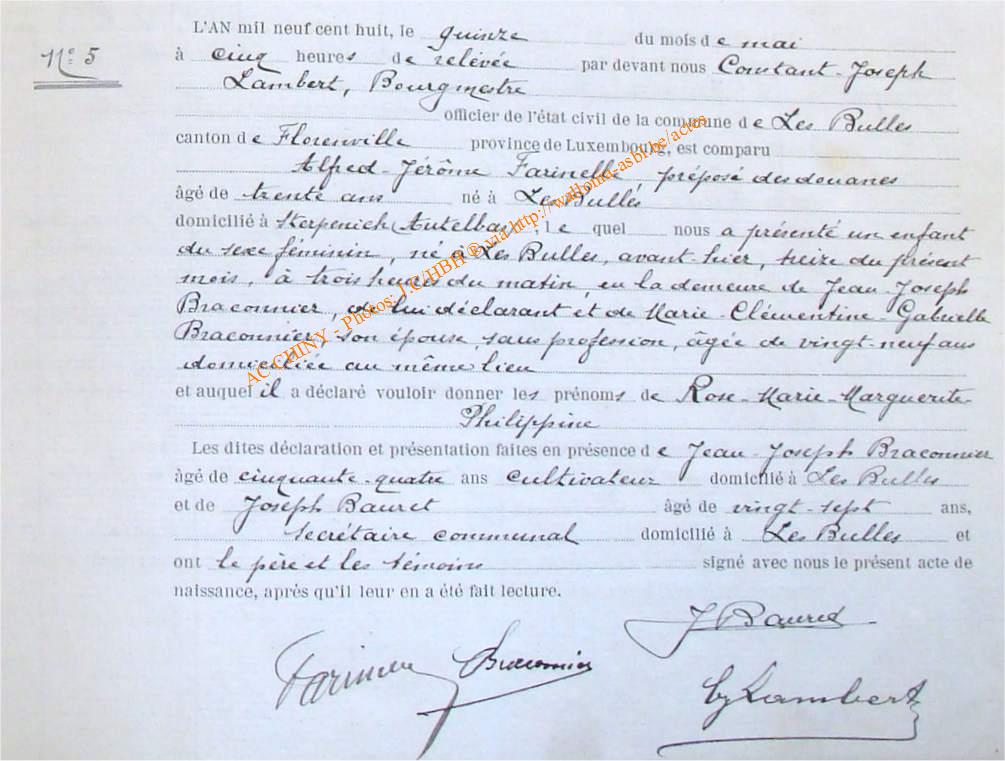 N° 5
L'AN mil neuf cent huit, le quinze du mois de mai
à cinq heures de relevée par devant nous Constant-Joseph
Lambert, Bourgmestre
officier de l'état civil de la commune de Les Bulles
canton de Florenville province de Luxembourg, est comparu
Alfred-Jérôme Farinelle, préposé des douanes
âgé de trente ans né à Les Bulles
domicilié à Sterpenich (Autelbas), le quel nous a présenté un enfant
du sexe féminin, né à Les Bulles, avant-hier, treize du présent
mois, à trois heures du matin, en la demeure de Jean-Joseph
Braconnier, de lui déclarant et de Marie-Clémentine-Gabrielle
Braconnier son épouse, sans profession, âgée de vingt-neuf ans
domiciliée au même lieu
et auquel il a déclaré vouloir donner les prénoms de Rose-Marie-Marguerite-
Philippine
Les dites déclaration et présentation faites en présence de Jean-Joseph Braconnier
âgé de cinquante-quatre ans cultivateur domicilié à Les Bulles
et de Joseph Bauret âgé de vingt-sept ans,
secrétaire communal domicilié à Les Bulles et
ont le père et les témoins signé avec nous le présent acte de
naissance, après qu'il leur en a été fait lecture.
J Bauret
Farinelle Braconnier
Lambert
AC CHINY - Photos: J.C/HBH ® via http://wallonia-asbl.be/actes